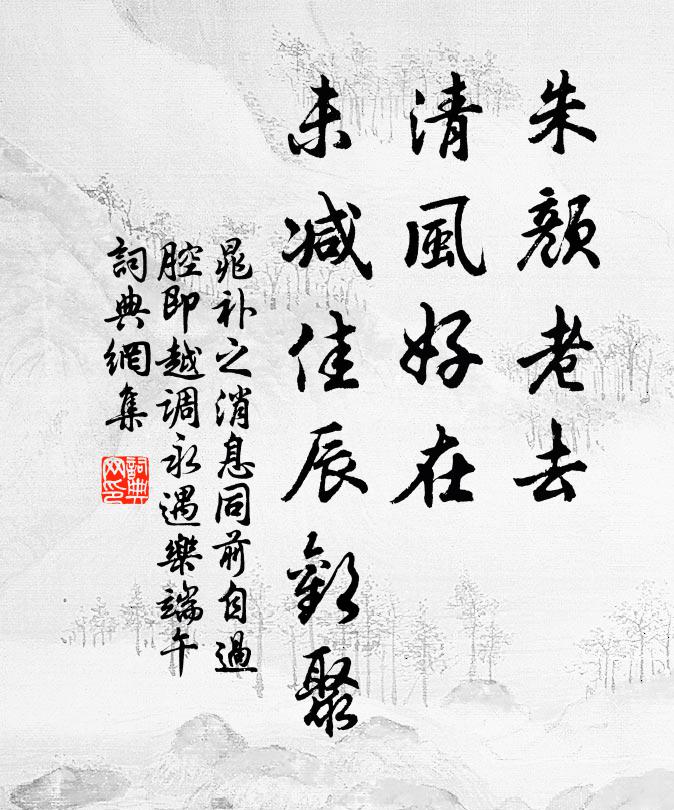 朱顔老去
清風好在
未减佳辰歡聚
晁补之消息同前自過
腔即越調永遇樂端午
詞典網集
詞典网印